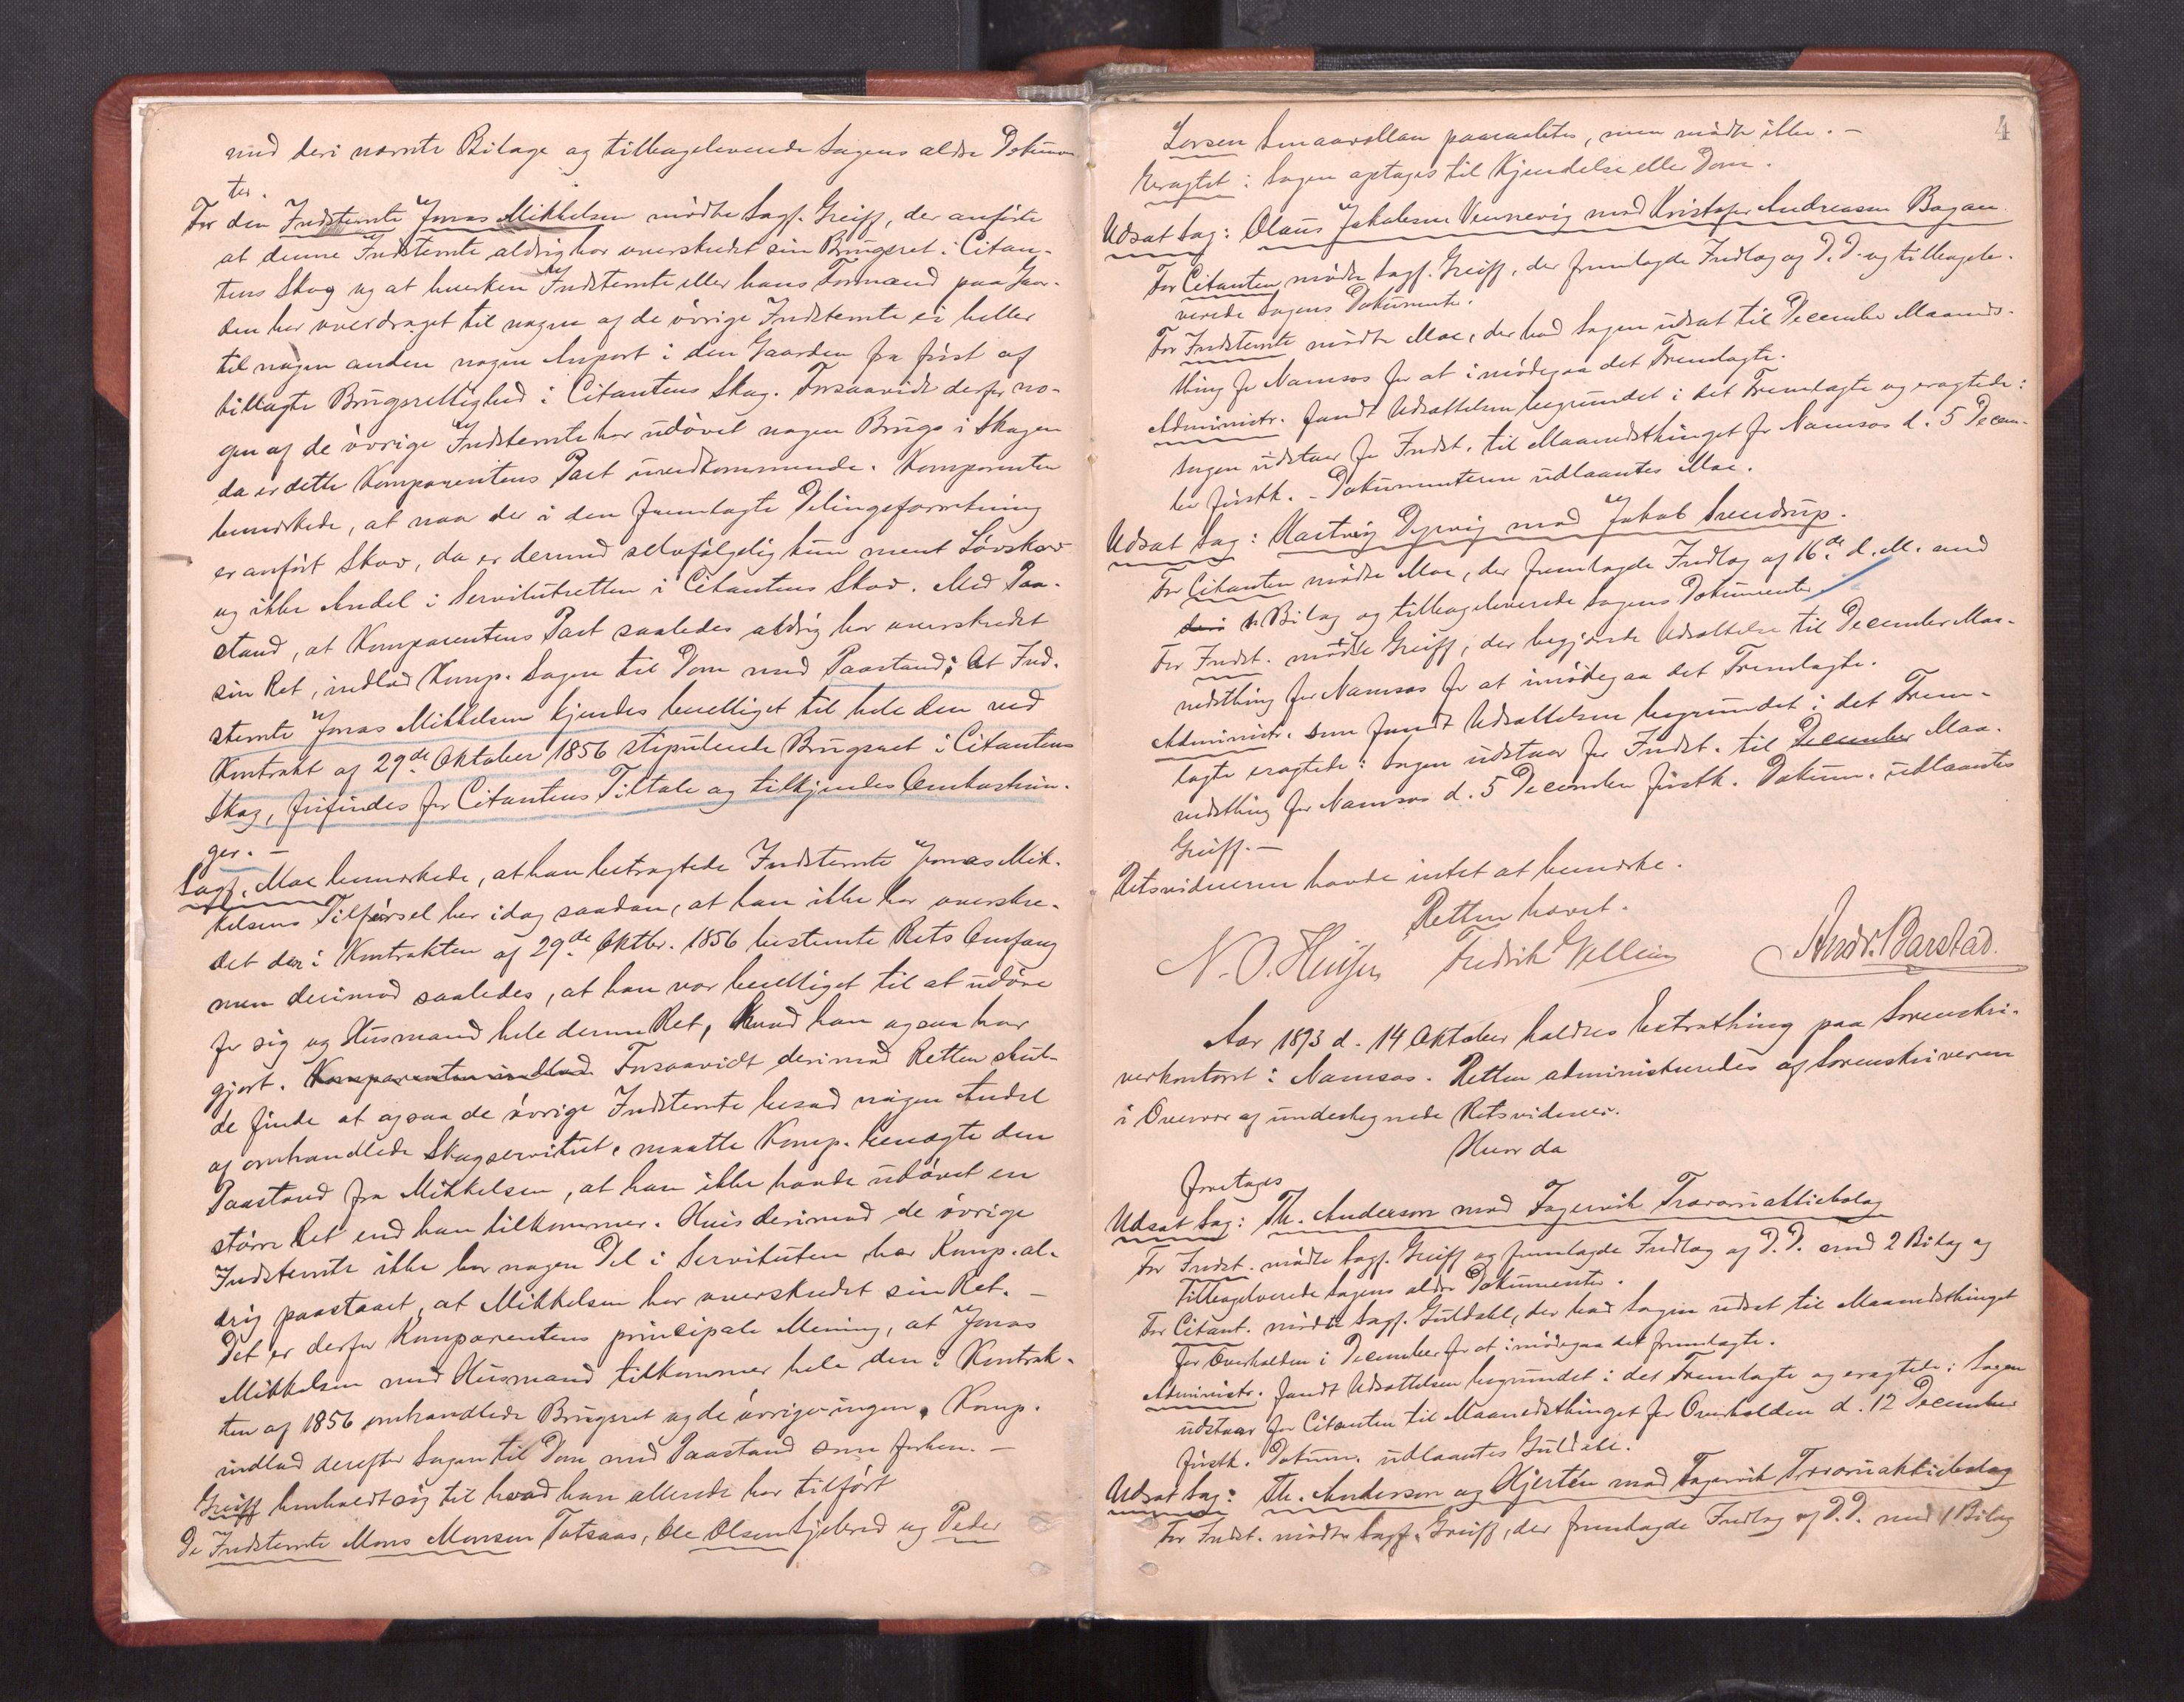 med deri nævnte Bilage og tilbageleverede Sagens aldre Dokumen
ter.
For den Indstemte Jonas Mikkelsen mødte Sagf. Greiff, der anførte
at denne Indstemte aldrig har overskredet sin Brugsret i Citan-
tens Skog og at hverken Indstemte eller hans Formænd paa Gaar-
den har overdraget til nogen af de övrige Indstemte ei heller
til nogen anden nogen Anpart i den Gaarden fra först af
tillagte Brugsrettighed i Citantens Skog. Forsaavidt derfor no-
gen af de övrige Indstemte har udövet nogen Brug i Skogen
da er dette Komparentens Part uvedkommende. Komparenten
bemærkede, at naar der i den fremlagte Delingsforretning
er anfört Skov, da er dermed selvfölgelig kun ment Lövskov
og ikke Andel i Servitutretten i Citantens Skov. Med Paa-
stand, at Komparentens Part saaledes aldrig har overskredet
sin Ret, indlod Komp. Sagen til Dom med Paastand: At Ind-
stemte Jonas Mikkelsen kjendes berettiget til hele den ved
Kontrakt af 29de Oktober 1856 stipulerede Brugsret i Citantens
Skog, frifindes for Citantens Tiltale og tilkjendes Omkostnin-
ger. -
Sagf. Moe bemærkede, at han betragtede Indstemte Jonas Mik-
kelsens Tilförsel her idag saadan, at han ikke har overskre-
det den i Kontrakten af 29de Oktbr. 1856 bestemte Rets Omfang
men derimod saaledes, at han var berettiget til at udöve
for sig og Husmand hele denne Ret, hvad han ogsaa har
gjort. Komparenten indlod Forsaavidt derimod Retten skul-
de finde at ogsaa de övrige Indstemte besad nogen Andel
af omhandlede Skogservitut, maatte Komp. benægte den
Paastand fra Mikkelsen, at han ikke havde udövet en
större Ret end ham tilkommer. Hvis derimod de övrige
Indstemte ikke har nogen Del i Servituten har Komp. al-
drig paastaaet, at Mikkelsen har overskredet sin Ret. -
Det er derfor Komparentens principale Mening, at Jonas
Mikkelsen med Husmand tilkommer hele den i Kontrak-
ten af 1856 omhandlede Brugsret og de övrige ingen. Komp.
indlod derefter Sagen til Dom med Paastand som forhen. -
Greiff henholdt sig til hvad han allerede har tilfört
De Indstemte Mons Monsen Totsaas, Ole Olsen Gjebred og Peder
4
Larsen Smaavollan paaraabtes, men mödte ikke. -
Eragtet: Sagen optages til Kjendelse eller Dom.
Udsat Sag: Olaus Jakobsen Vennevig mod Kristofer Andreasen Bagan.
For Citanten mödte Sagf. Greiff, der fremlagde Indlæg af D. D. og tilbagele-
verede Sagens Dokumenter.
For Indstemte mödte Moe, der bad Sagen udsat til December Maaneds-
thing for Namsos for at imödegaa det Fremlagte.
Administr. fandt Udsættelsen begrundet i det Fremlagte og eragtede:
Sagen udstaar for Indst. til Maanedsthinget for Namsos d. 5 Decem-
ber förstk. - Dokumenterne udlaantes Moe.
Udsat Sag: Hartvig Dyrvig mod Jakob Svendrup.
For Citanten mödte Moe, der fremlagde Indlæg af 16de d. M. med
deri 1 Bilag og tilbageleverede Sagens Dokumenter.
For Indst. mödte Greiff, der begjærede Udsættelse til December Maa-
nedsthing for Namsos for at imödegaa det Fremlagte.
Administr. som fandt Udsættelsen begrundet i det Frem-
lagte eragtede: Sagen udstaar for Indst. til December Maa-
nedsthing for Namsos d. 5 December förstk. Dokum. udlaantes
Greiff. -
Retsvidnerne havde intet at bemærke.
Retten hævet.
Fredrik
Andr. Barstad.
Aar 1893 d. 14 Oktober holdtes Extrathing paa Sorenskri-
verkontoret i Namsos. Retten administreredes af Sorenskriveren
i Overvær af undertegnede Retsvidner.
Hvor da
foretages
Udsat Sag: Th. Anderson mod Fagervik Trævaruaktiebolag
For Indst. mödte Sagf. Greiff og fremlagde Indlæg af D. D. med 2 Bilag og
tilbageleverede Sagens ældre Dokumenter.
For Citant. mödte Sagf. Guldahl, der bad Sagen udsat til Maanedsthinget
for Overhalden i December for at imödegaa det fremlagte.
Administr. fandt Udsættelsen begrundet i det Fremlagte og eragtede: Sagen
udstaar for Citanten til Maanedsthinget for Overhalden d. 12 December
förstk. Dokum. udlaantes Guldahl.
Udsat Sag: Th. Anderson og Hjertén mod Fagervik Trævaruaktiebolag
For Indst. mödte Sagf. Greiff, der fremlagde Indlæg af D. D. med 1 Bilag